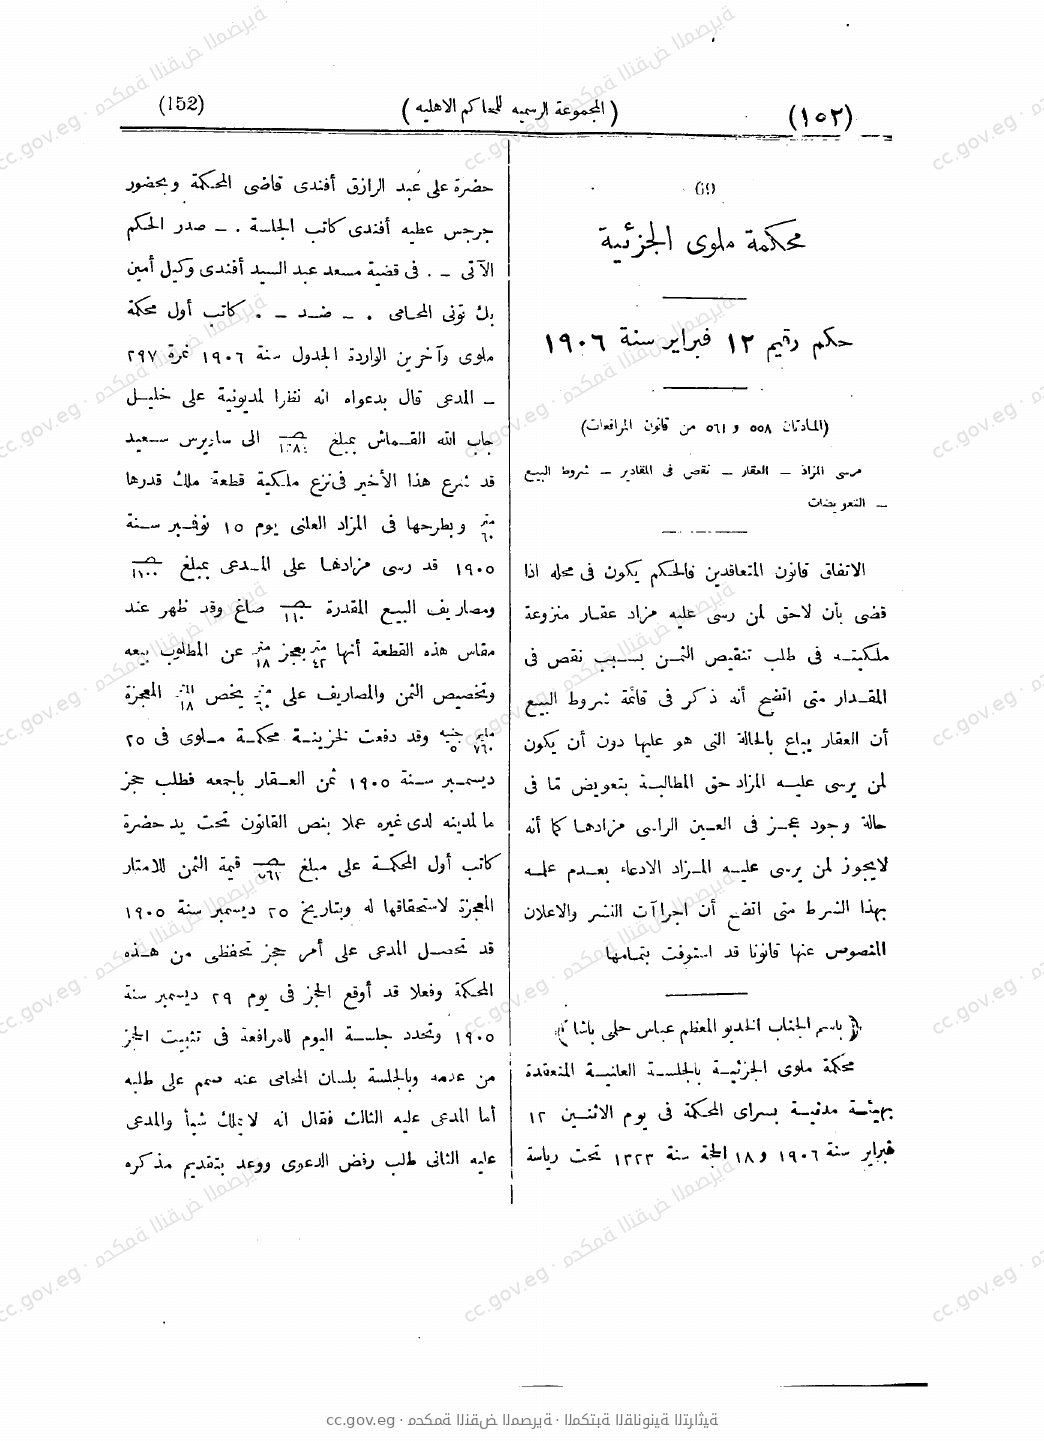 (١٥٢)
( المجموعة الرسميه للمحاكم الاهليه )
(152)
69
محكمة ملوى الجزئية
حكم رقيم ١٢ فبراير سنة ١٩٠٦
(المادتان ٥٥٨ و ٥٦١ من قانون المرافعات)
مرسى المزاد – العقار – نقص فى المقادير – شروط البيع
– التعويضات
الاتفاق قانون المتعاقدين فالحكم يكون فى محله اذا
قضى بأن لاحق لمن رسى عليه مزاد عقار منزوعة
ملكيته فى طلب تنقيص الثمن بسبب نقص فى
المقدار متى اتضح أنه ذكر فى قائمة شروط البيع
أن العقار يباع بالحالة التى هو عليها دون أن يكون
لمن يرسى عليه المزاد حق المطالبة بتعويض مّا فى
حالة وجود عجز فى العين الراسى مزادها كما أنه
لايجوز لمن يرسى عليه المزاد الادعاء بعدم علمه
بهذا الشرط متى اتضح أن اجراآت النشر والاعلان
المنصوص عنها قانونا قد استوفت بتمامها
﴿ باسم الجناب الخديو المعظم عباس حلمى باشا ﴾
محكمة ملوى الجزئية بالجلسة العلنية المنعقدة
بهيئة مدنية بسراى المحكمة فى يوم الاثنين ١٢
فبراير سنة ١٩٠٦ و ١٨ الحجة سنة ١٣٢٣ تحت رياسة
حضرة على عبد الرازق أفندى قاضى المحكمة وبحضور
جرجس عطيه أفندى كاتب الجلسة . – صدر الحكم
الآتى – . فى قضية مسعد عبد السيد أفندى وكيل أمين
بك تونى المحامى . – ضد – . كاتب أول محكمة
ملوى وآخرين الواردة الجدول سنة ١٩٠٦ نمرة ٢٩٧
– المدعى قال بدعواه انه نظرا لمديونية على خليل
جاب الله القماش بمبلغ الى ساويرس سعيد
قد شرع هذا الأخير فى نزع ملكية قطعة ملك قدرها
متر ٦٠ وبطرحها فى المزاد العلنى يوم ١٥ نوفمبر سنة
١٩٠٥ قد رسى مزادها على المدعى بمبلغ ١١٠٠
ومصاريف البيع المقدرة صاغ وقد ظهر عند
مقاس هذه القطعة أنها متر ٤٢ بعجز متر ١٨ عن المطلوب بيعه
وبتخصيص الثمن والمصاريف على متر ٦٠ يخص ١٨ المعجزة
مليم ٧٦٠ جنيه ٥ وقد دفعت لخزينة محكمة ملوى فى ٢٥
ديسمبر سنة ١٩٠٥ ثمن العقار باجمعه فطلب حجز
ما لمدينه لدى غيره عملا بنص القانون تحت يد حضرة
كاتب أول المحكمة على مبلغ قيمة الثمن للامتار
المعجزة لاستحقاقها له وبتاريخ ٢٥ ديسمبر سنة ١٩٠٥
قد تحصل المدعى على أمر حجز تحفظى من هذه
المحكمة وفعلا قد أوقع الحجز فى يوم ٢٩ ديسمبر سنة
١٩٠٥ وتحدد جلسة اليوم للمرافعة فى تثبيت الحجز
من عدمه وبالجلسة بلسان المحامى عنه صمم على طلبه
أما المدعى عليه الثالث فقال انه لا يملك شيأ والمدعى
عليه الثانى طلب رفض الدعوى ووعد بتقديم مذكره
cc.gov.eg · محكمة النقض المصرية · المكتبة القانونية التراثية